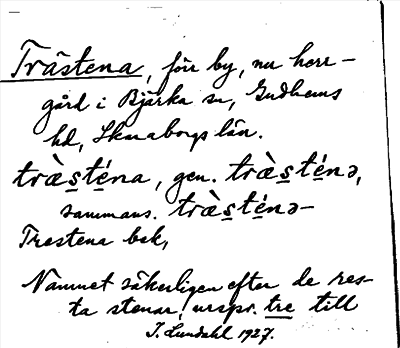 Trästena, förr by, nu herr-
gård i Bjärka sn, Gudhems
hd, Skaraborgs län.
träs̱té̱na, gen. träs̱té̱nə,
sammans. träs̱té̱nə-
Trestena bek,
Namnet säkerligen efter de res-
ta stenar, urspr. tre till
J. Lundahl 1927.